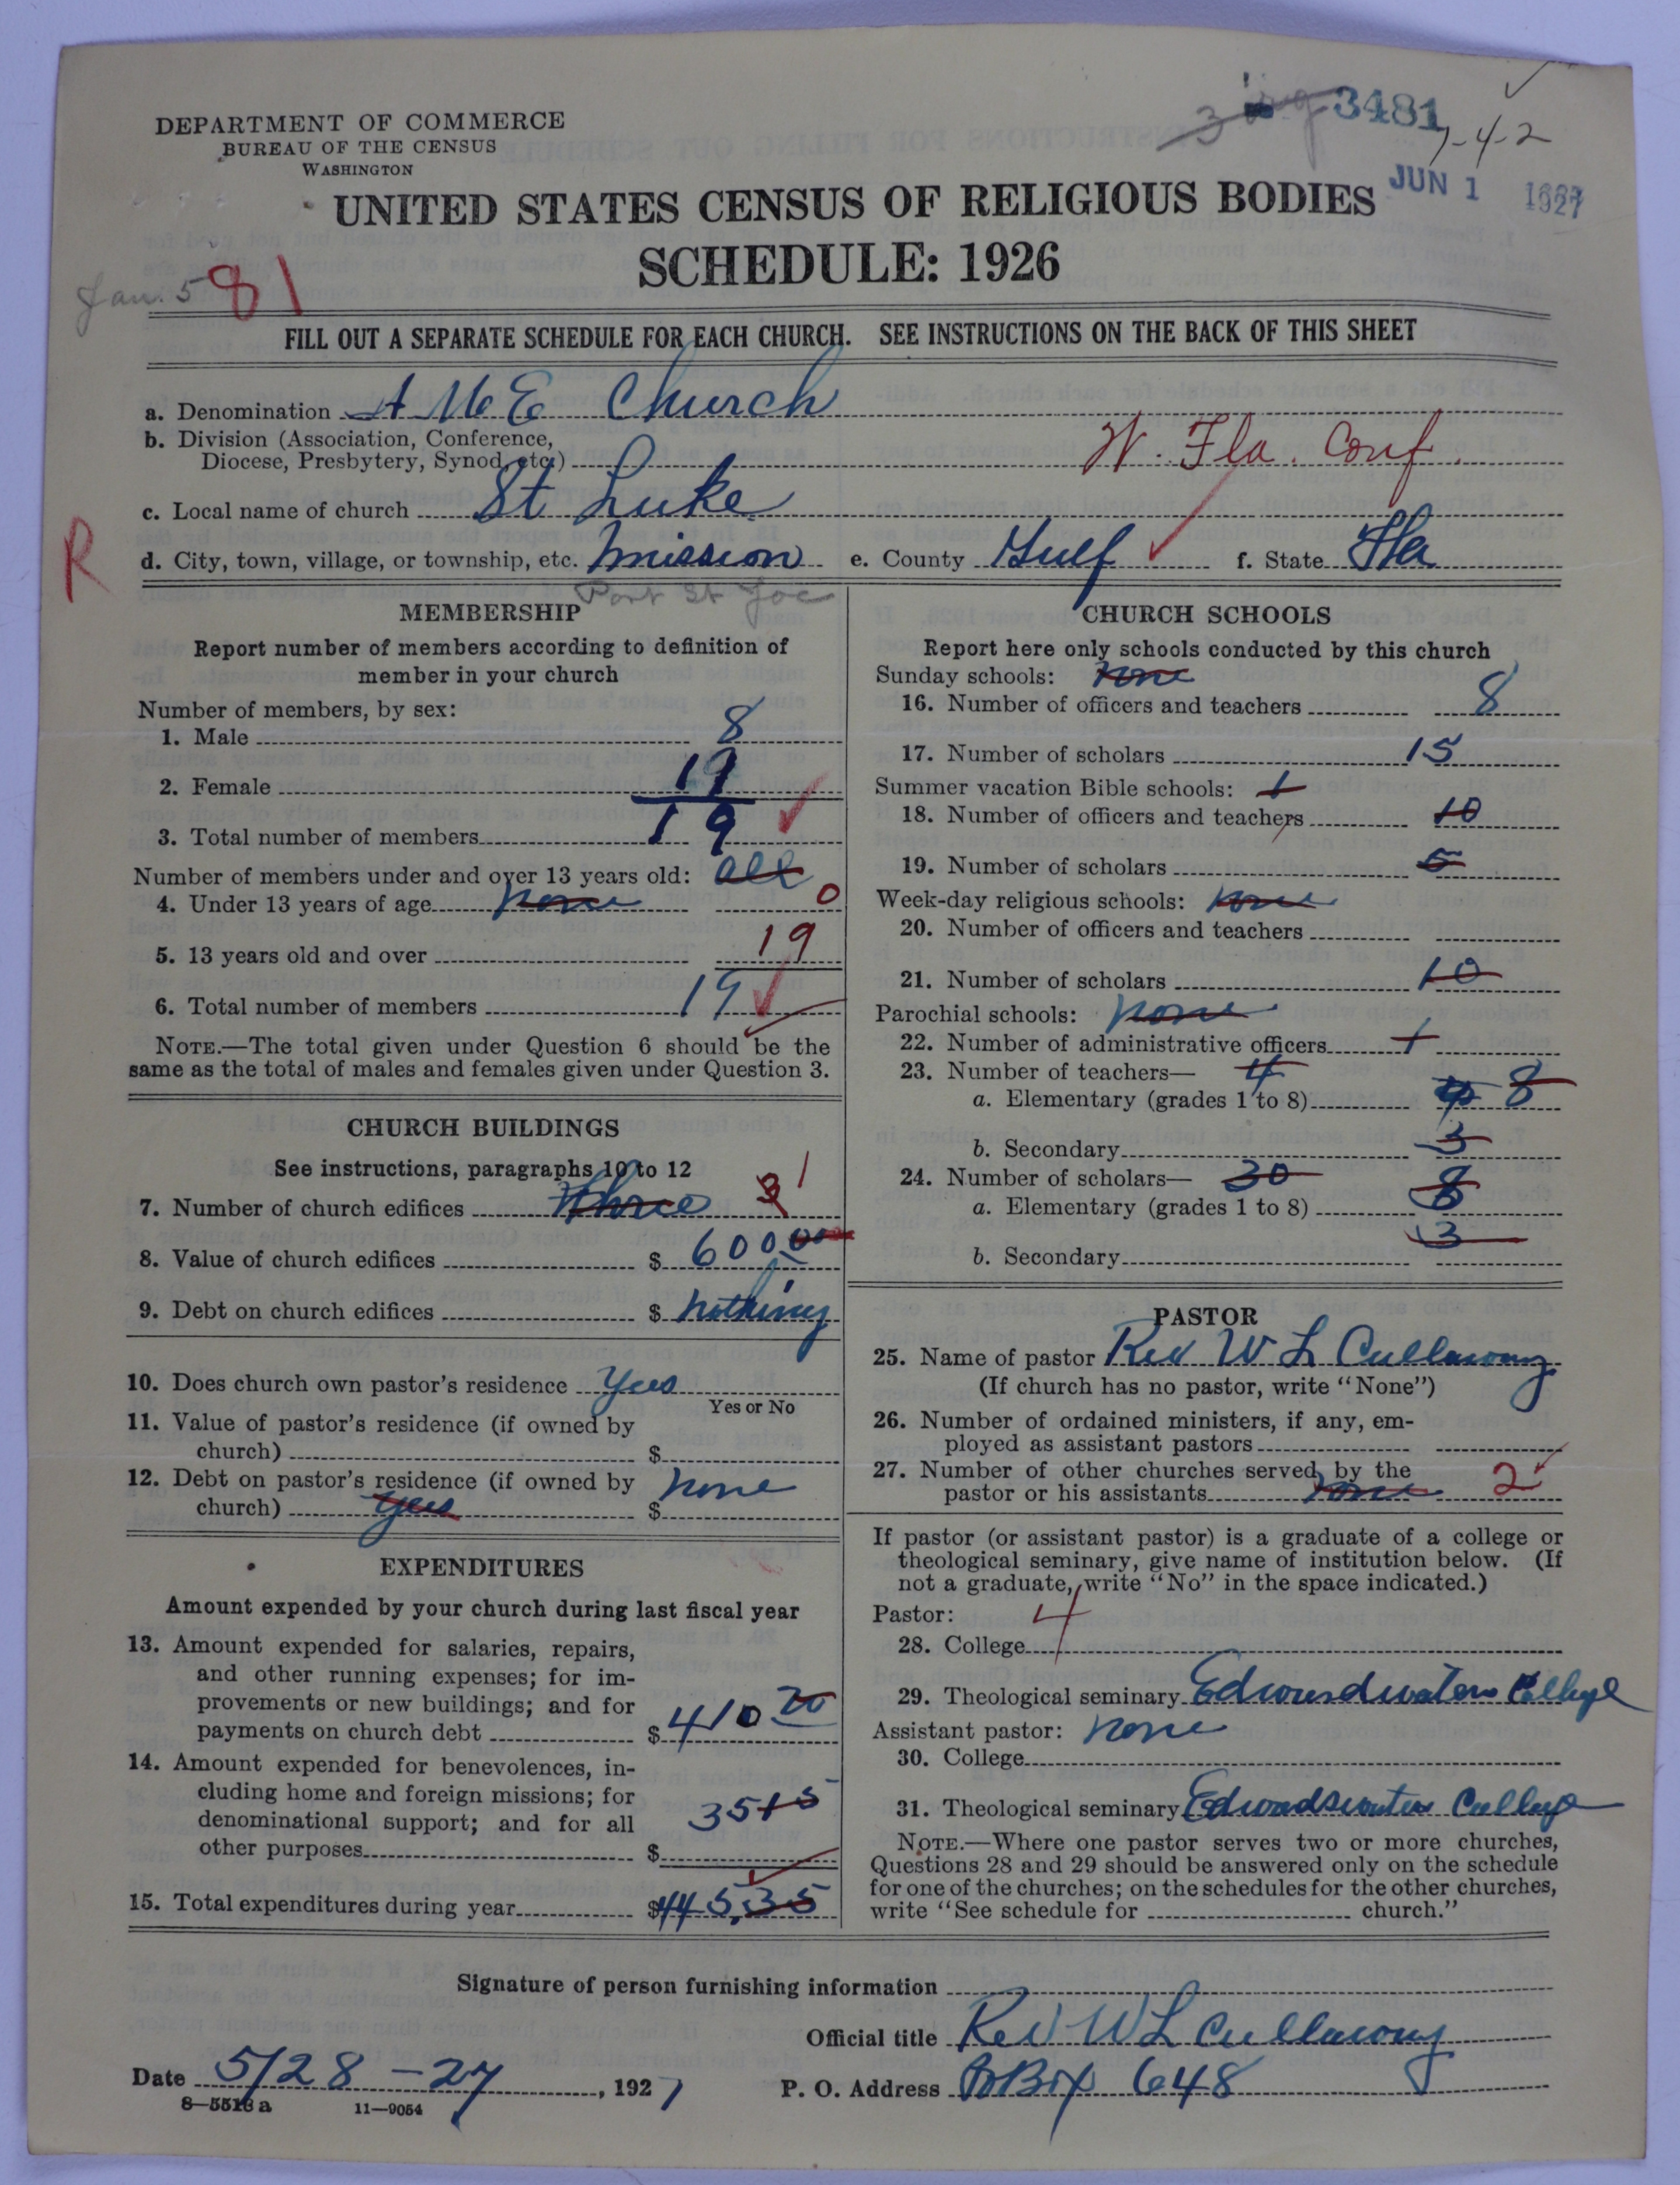 3 3481
7-4-2
JUN 1 1927
DEPARTMENT OF COMMERCE
BUREAU OF THE CENSUS
WASHINGTON
UNITED STATES CENSUS OF RELIGIOUS BODIES
SCHEDULE: 1926
Jan. 5 81
FILL OUT A SEPARATE SCHEDULE FOR EACH CHURCH. SEE INSTRUCTIONS ON THE BACK OF THIS SHEET
a. Denomination A M E Church
b. Division (Association, Conference,
Diocese, Presbytery, Synod, etc.) W. Fla. Conf.
c. Local name of church St Luke
R
d. City, town, village, or township, etc. Mission e. County Gulf f. State Fla
Port St Joe
MEMBERSHIP
Report number of members according to definition of
member in your church
Number of members, by sex:
1. Male 8
2. Female 11
3. Total number of members 19
Number of members under and over 13 years old: all
4. Under 13 years of age none 0
5. 13 years old and over 19
6. Total number of members 19
NOTE.—The total given under Question 6 should be the
same as the total of males and females given under Question 3.
CHURCH BUILDINGS
See instructions, paragraphs 10 to 12
7. Number of church edifices three 3 1
8. Value of church edifices $ 600 00
9. Debt on church edifices $ nothing
10. Does church own pastor's residence Yees
Yes or No
11. Value of pastor's residence (if owned by
church) $
12. Debt on pastor's residence (if owned by
church) yees $ none
EXPENDITURES
Amount expended by your church during last fiscal year
13. Amount expended for salaries, repairs,
and other running expenses; for im-
provements or new buildings; and for
payments on church debt $ 410 20
14. Amount expended for benevolences, in-
cluding home and foreign missions; for
denominational support; and for all
other purposes $ 35 15
15. Total expenditures during year $ 445,35
CHURCH SCHOOLS
Report here only schools conducted by this church
Sunday schools: none
16. Number of officers and teachers 8
17. Number of scholars 15
Summer vacation Bible schools: 1
18. Number of officers and teachers 10
19. Number of scholars 5
Week-day religious schools: none
20. Number of officers and teachers
21. Number of scholars 10
Parochial schools: none
22. Number of administrative officers 1
23. Number of teachers— 4
a. Elementary (grades 1 to 8) 8
b. Secondary 3
24. Number of scholars— 30
a. Elementary (grades 1 to 8) 8
b. Secondary 3
PASTOR
25. Name of pastor Rev W L Cullawny
(If church has no pastor, write "None")
26. Number of ordained ministers, if any, em-
ployed as assistant pastors
27. Number of other churches served by the
pastor or his assistants none 2
If pastor (or assistant pastor) is a graduate of a college or
theological seminary, give name of institution below. (If
not a graduate, write "No" in the space indicated.)
Pastor: 4
28. College
29. Theological seminary Edwardwaters College
Assistant pastor: none
30. College
31. Theological seminary Edwadswaters Cullege
NOTE.—Where one pastor serves two or more churches,
Questions 28 and 29 should be answered only on the schedule
for one of the churches; on the schedules for the other churches,
write "See schedule for church."
Signature of person furnishing information
Official title Rev W L Cullawny
Date 5/28-27, 1927 P. O. Address Box 648
8—5518 a 11—9054